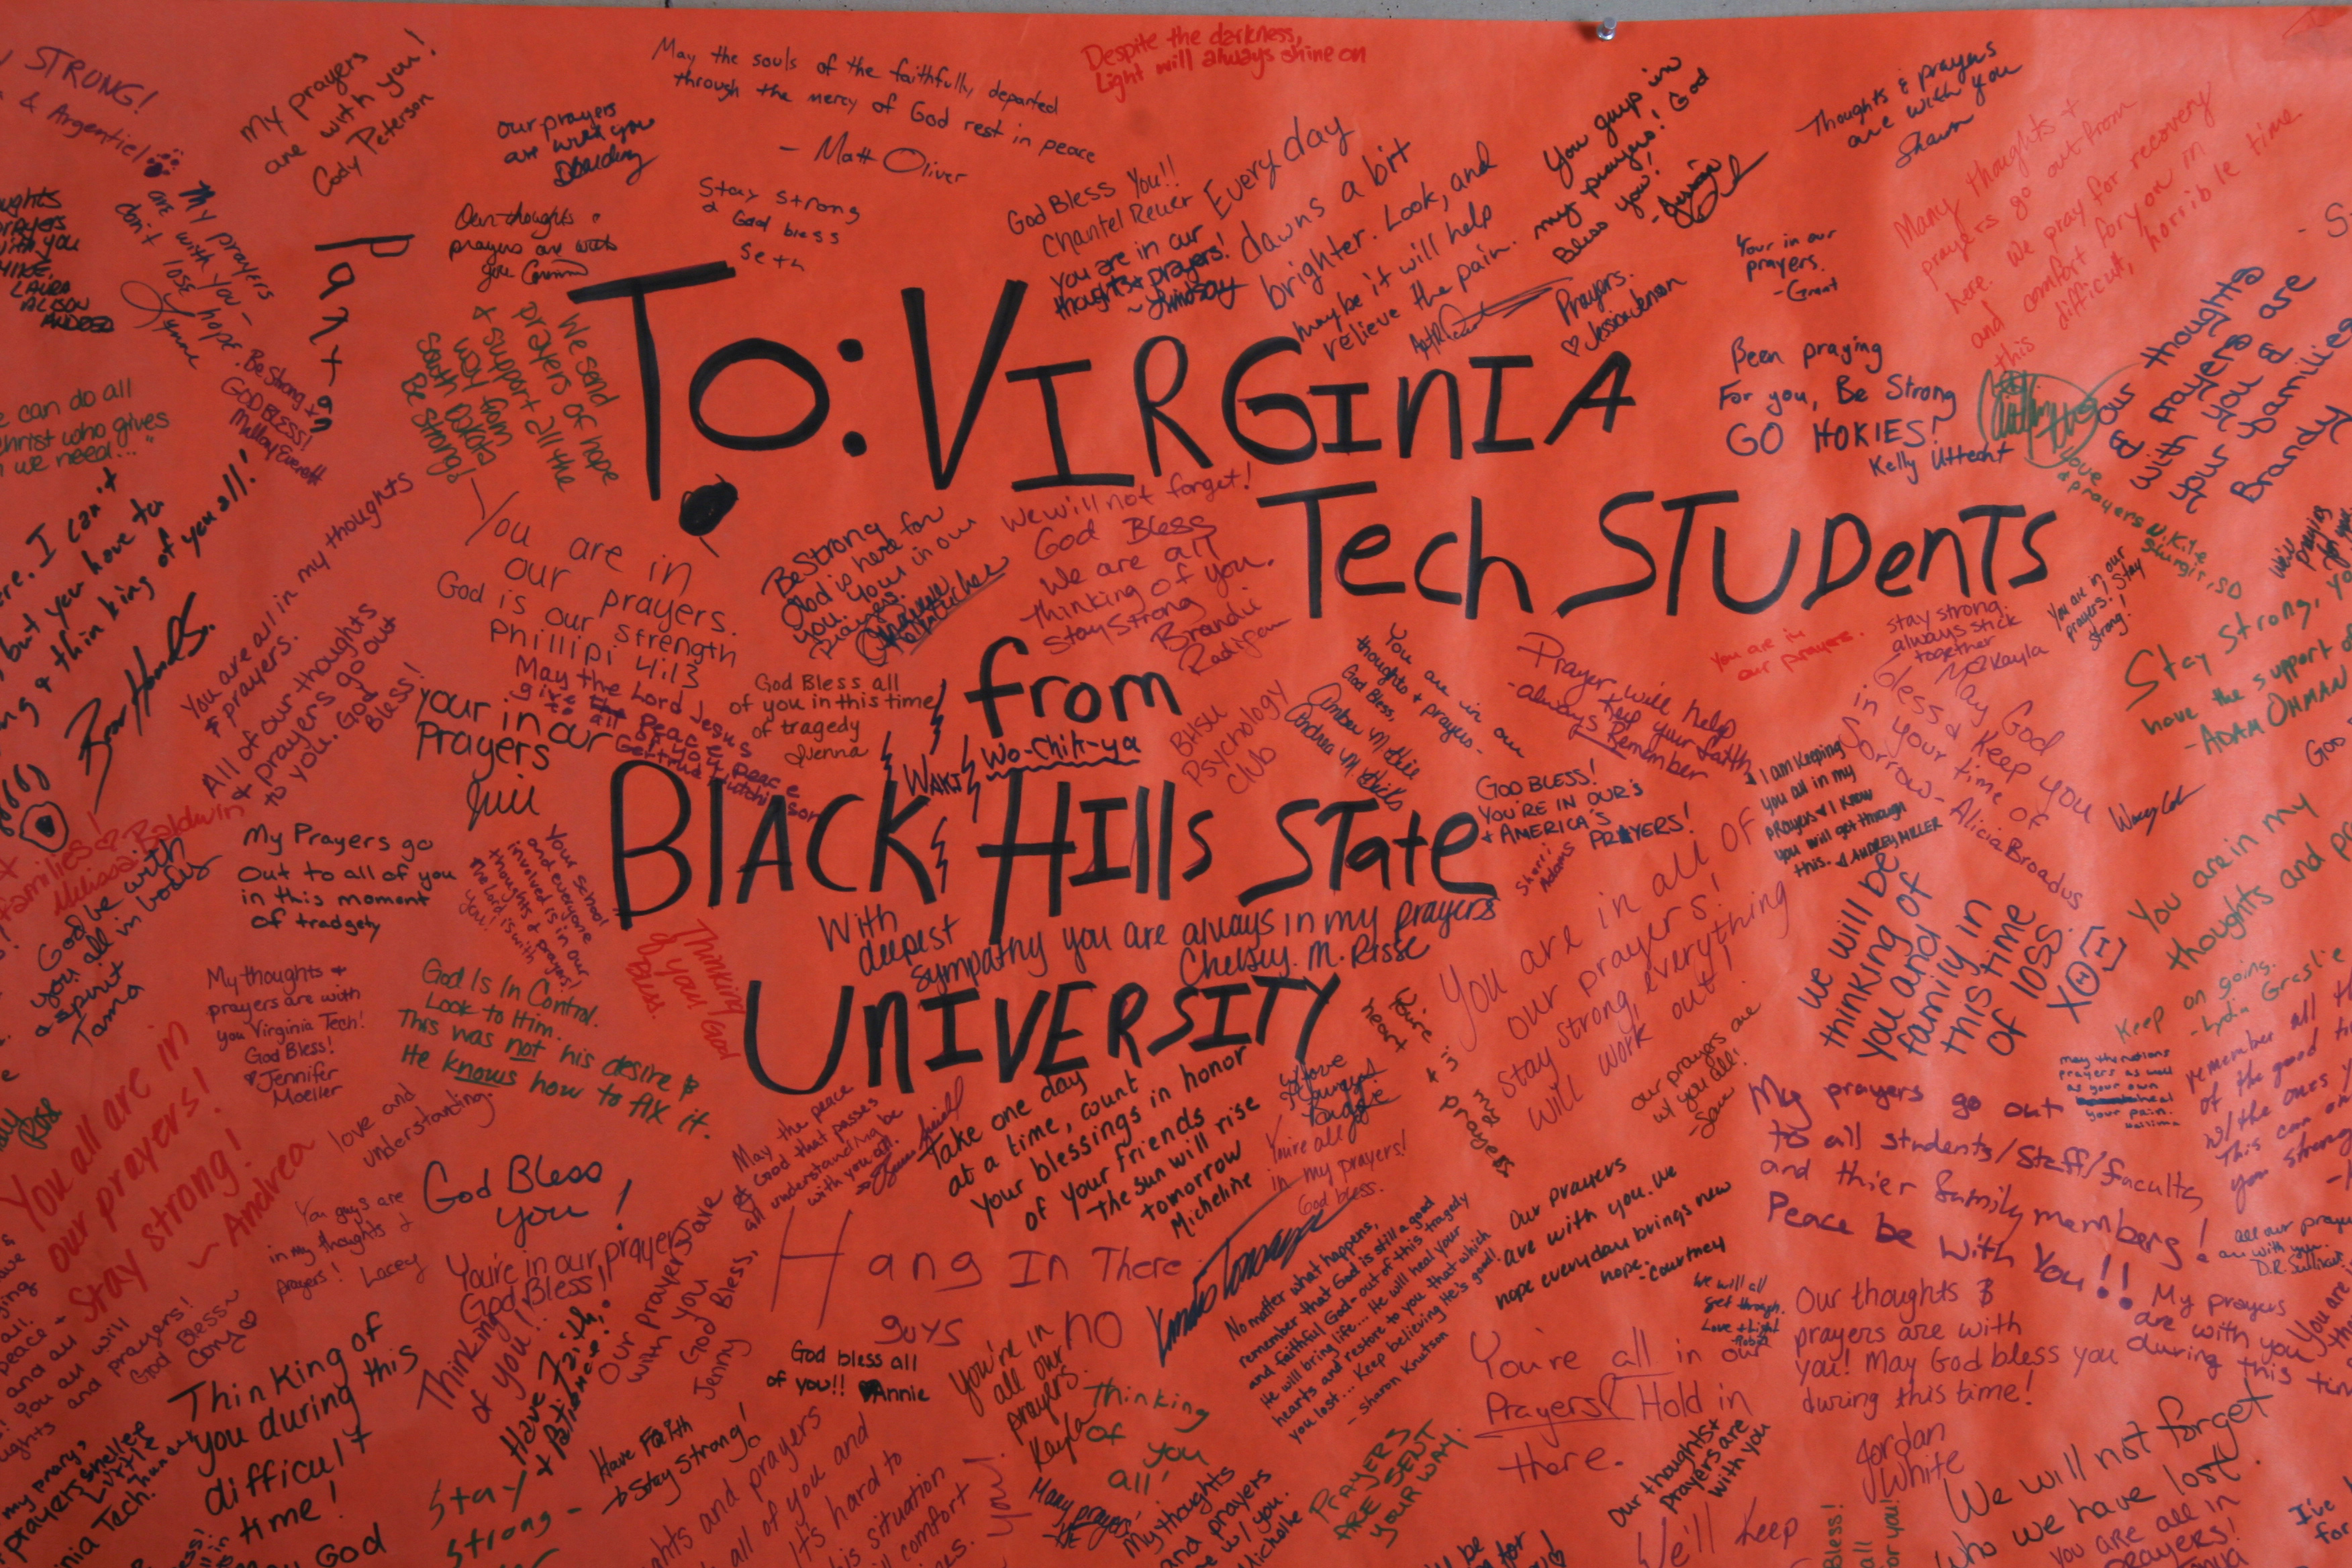 To: Virginia
Tech Students
from
Black Hills State
University
STRONG!
& Argentiel
My prayers
are with you!
Cody Peterson
our prayers
are with you
May the souls of the faithfully, departed
through the mercy of God rest in peace
- Matt Oliver
Despite the darkness,
Light will always shine on
Stay Strong
& God bless
Seth
Our thoughts &
prayers are with
you
My prayers
are with you-
don't lose hope.
Lynne
Paxton
God Bless You!!
Chantel Reuer
you are in our
thoughts & prayers!
~ Lindsay
Everyday
dawns a bit
brighter. Look, and
maybe it will help
relieve the pain.
You guys in
my prayers! God
Bless you!
Prayers.
♡ Jessica Jenson
Thoughts & prayers
are with you
Shawn
Your in our
prayers.
-Grant
Many thoughts +
prayers go out from
here. We pray for recovery
and comfort for you in
this difficult, horrible time
Been praying
For you, Be Strong
GO HOKIES!
Kelly Uttecht
Our thoughts
& prayers are
with you &
your families
Brandy
Love
& prayers N. Kile
Sturgis, SD
LAURA
ALISON
ANDREA
Be Strong &
GOD BLESS!
Mallory Everett
We send
prayers of hope
& support all the
way from
South Dakota
Be strong!
e can do all
christ who gives
we need..."
ere. I can't
but you have to
ng & thinking of you all!
You are all in my thoughts
& prayers.
You are in
our prayers.
God is our strength
Phillipi 4:13
Be Strong
God is here for
you. Your in our
Prayers.
We will not forget!
God Bless
We are all
thinking of you.
Stay Strong
Brandie
Radigan
All of our thoughts
& prayers go out
to you. God
Bless!
May the Lord Jesus
give the peace
to all beyond peace
Gertrude Hutchinson
your in our
Prayers
Jill
God Bless all
of you in this time
of tragedy
WAKI
Wo-Chih-ya
BHSU
Psychology
Club
You are in our
thoughts & prayers.
God Bless,
Amber M.
Andrea M.
Prayer will help
keep your faith
-always Remember
You are in
our prayers.
stay strong.
always stick
together
Makayla
You are in our
prayers! Stay
Strong!
we're
praying
for you
Stay Strong, Yo
have the support of
-ADAM OHMAN
May God
bless & keep you
in your time of
Sorrow - Alicia Broadus
GOD BLESS!
YOU'RE IN OUR'S
& AMERICA'S
PRAYERS!
Sherri
Adams
I am keeping
you all in my
prayers & I know
you will get through
this. AUDREY MILLER
families ♡
Melissa Baldwin
My Prayers go
Out to all of you
in this moment
of tradgety
Your School
and everyone
involved is in our
thoughts & prayers!
The Lord is with
you!
God be with
you all in body
& spirit
Tama
Thinking
of you! God
Bless.
With
deepest
sympathy you are always in my prayers
Chelsey. M. Risse
You are in all of
our prayers!
stay strong, everything
will work out!
we will be
thinking of
you and
family in
this time
of loss.
XΘ
You are in my
thoughts and pr
My thoughts &
prayers are with
you Virginia Tech!
God Bless!
♥Jennifer
Moeller
God Is In Control.
Look to Him.
This was not his desire &
He knows how to fix it.
Keep on going.
-Lydia Greslie
our prayers are
w/ you all!
-Sam
You're
in my
heart &
prayers
May the nations
prayers as well
as your own
heal
your pain.
remember all th
of the good ti
w/ the ones y
This can on
you strong
You all are in
our prayers!
Stay strong!
~ Andrea
love and
understanding.
May the peace
of God that passes
all understanding be
with you all.
Take one day
at a time, count
your blessings in honor
of your friends
the sun will rise
tomorrow
Micheline
You're all
in my prayers!
God bless.
My prayers go out
to all students/staff/faculty
and thier family members!
Peace be With You!!
God Bless
you!
You guys are
in my thoughts &
prayers! Lacey
You're in our prayers
God Bless!!
Our prayers are
with you
God Bless,
Jenny
Hang In There
guys
No matter what happens,
remember that God is still a good
and faithful God-out of this tragedy
He will bring life... He will heal your
hearts and restore to you that which
you lost... Keep believing He's good!
- Sharon Knutson
Our prayers
are with you. We
hope everyday brings new
hope.
-Courtney
We will all
get through.
Love & Light
all our prayers
are with you.
D.R. Sullivan
Our thoughts &
prayers are with
you! May God bless you
during this time!
Jordan
White
My prayers
are with you
during this time
God Bless~
Cory♡
Thinking of
you during this
difficult
time!
Thinking
of you!!
Have Faith,
& Patience!
Have Faith
→Stay Strong!
God bless all
of you!! ♥Annie
You're in
all our
prayers.
Kayla
Thinking
of
you
all!
You're all in our
Prayers! Hold in
there.
Our thoughts &
prayers are
with you
PRAYERS
ARE SENT
YOUR WAY.
Many prayers
My thoughts
and prayers
are w/ you.
We will not forget
who we have lost.
You are all in
prayers!
Stay
Strong -
ghts and prayers
all of you and
It's hard to
this situation
comfort
We'll keep
I've